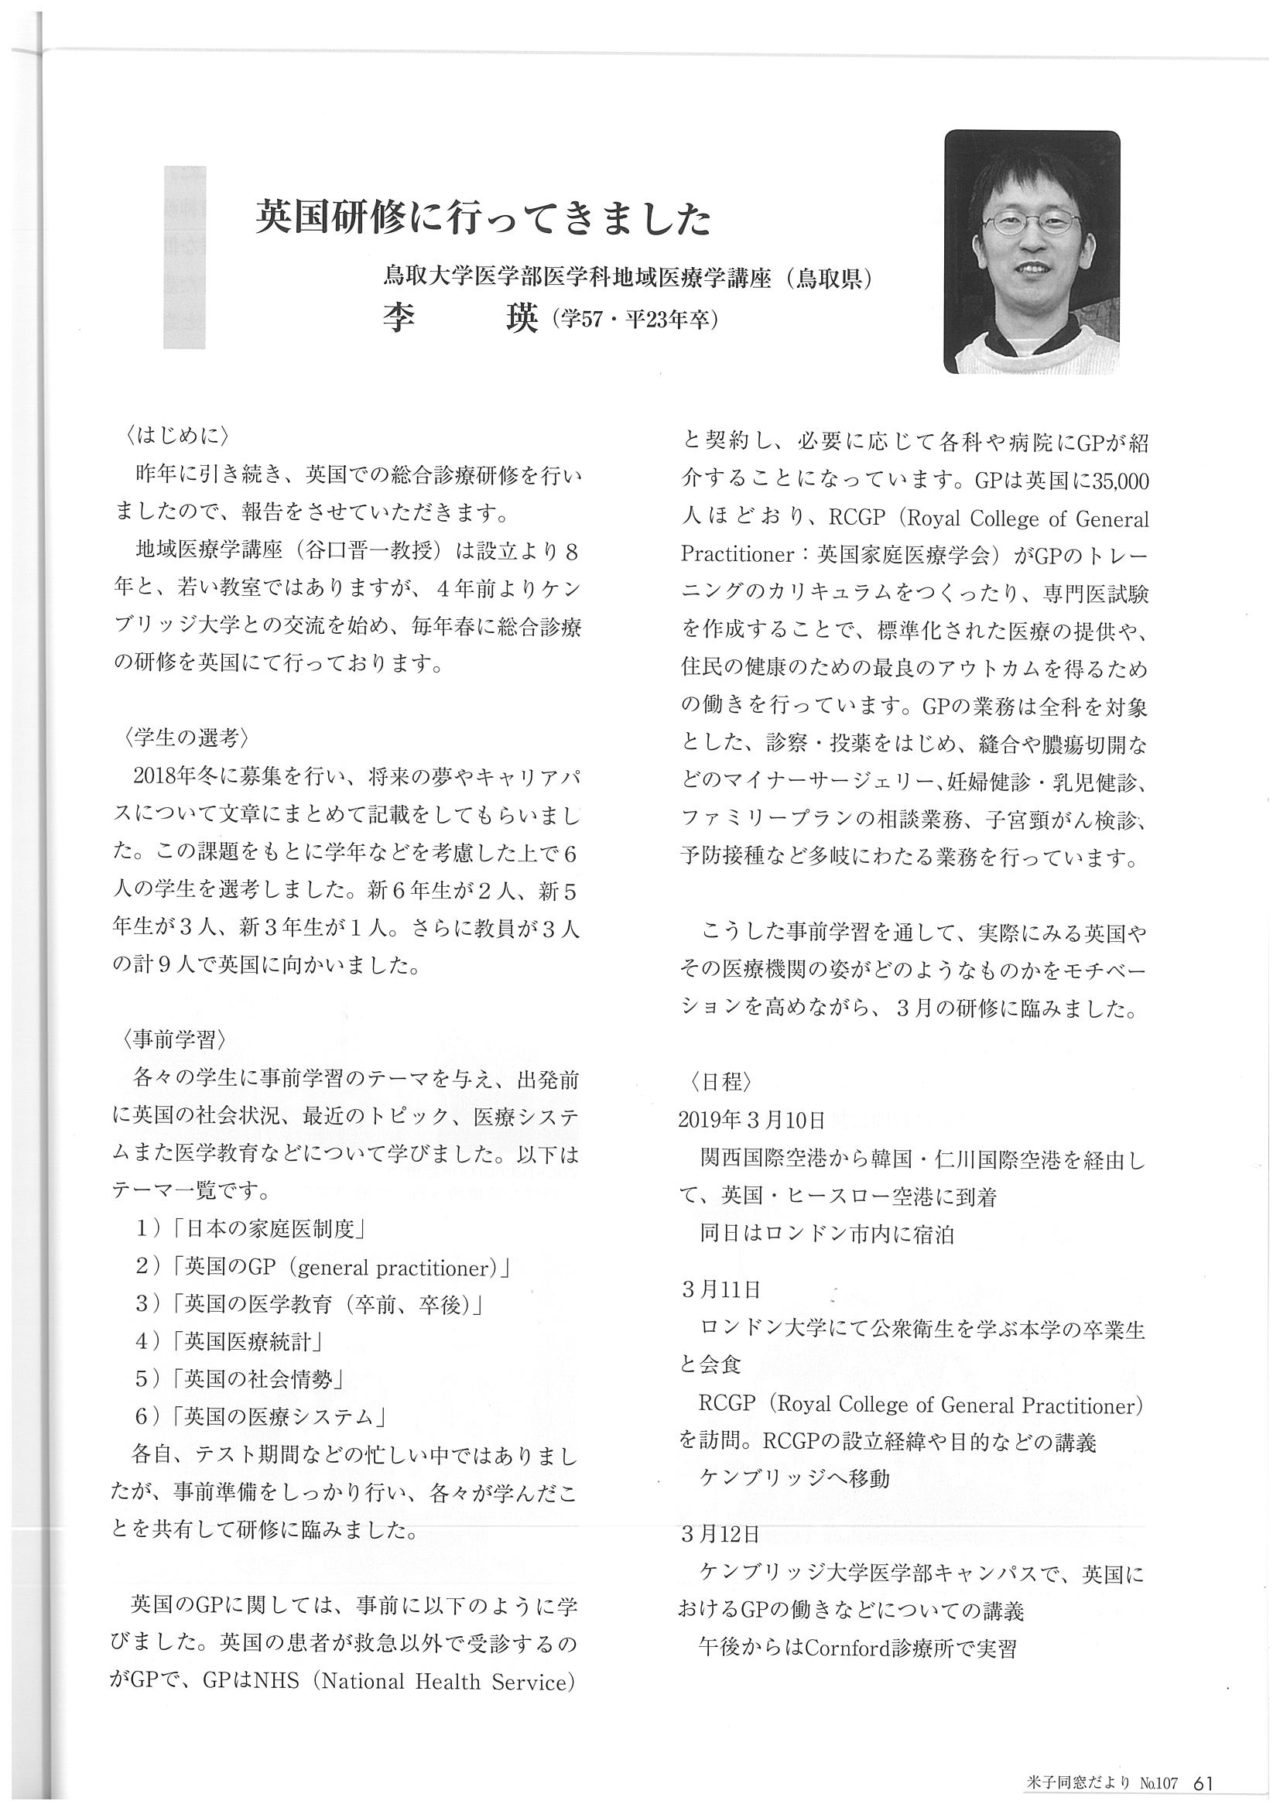 英国研修に行ってきました
鳥取大学医学部医学科地域医療学講座（鳥取県）
李　　瑛（学57・平23年卒）
〈はじめに〉
昨年に引き続き、英国での総合診療研修を行い
ましたので、報告をさせていただきます。
地域医療学講座（谷口晋一教授）は設立より８
年と、若い教室ではありますが、４年前よりケン
ブリッジ大学との交流を始め、毎年春に総合診療
の研修を英国にて行っております。
〈学生の選考〉
2018年冬に募集を行い、将来の夢やキャリアパ
スについて文章にまとめて記載をしてもらいまし
た。この課題をもとに学年などを考慮した上で６
人の学生を選考しました。新６年生が２人、新５
年生が３人、新３年生が１人。さらに教員が３人
の計９人で英国に向かいました。
〈事前学習〉
各々の学生に事前学習のテーマを与え、出発前
に英国の社会状況、最近のトピック、医療システ
ムまた医学教育などについて学びました。以下は
テーマ一覧です。
１）「日本の家庭医制度」
２）「英国のGP（general practitioner）」
３）「英国の医学教育（卒前、卒後）」
４）「英国医療統計」
５）「英国の社会情勢」
６）「英国の医療システム」
各自、テスト期間などの忙しい中ではありまし
たが、事前準備をしっかり行い、各々が学んだこ
とを共有して研修に臨みました。
英国のGPに関しては、事前に以下のように学
びました。英国の患者が救急以外で受診するの
がGPで、GPはNHS（National Health Service）
と契約し、必要に応じて各科や病院にGPが紹
介することになっています。GPは英国に35,000
人ほどおり、RCGP（Royal College of General
Practitioner：英国家庭医療学会）がGPのトレー
ニングのカリキュラムをつくったり、専門医試験
を作成することで、標準化された医療の提供や、
住民の健康のための最良のアウトカムを得るため
の働きを行っています。GPの業務は全科を対象
とした、診察・投薬をはじめ、縫合や膿瘍切開な
どのマイナーサージェリー、妊婦健診・乳児健診、
ファミリープランの相談業務、子宮頸がん検診、
予防接種など多岐にわたる業務を行っています。
こうした事前学習を通して、実際にみる英国や
その医療機関の姿がどのようなものかをモチベー
ションを高めながら、３月の研修に臨みました。
〈日程〉
2019年３月10日
関西国際空港から韓国・仁川国際空港を経由し
て、英国・ヒースロー空港に到着
同日はロンドン市内に宿泊
３月11日
ロンドン大学にて公衆衛生を学ぶ本学の卒業生
と会食
RCGP（Royal College of General Practitioner）
を訪問。RCGPの設立経緯や目的などの講義
ケンブリッジへ移動
３月12日
ケンブリッジ大学医学部キャンパスで、英国に
おけるGPの働きなどについての講義
午後からはCornford診療所で実習
米子同窓だより №107 61